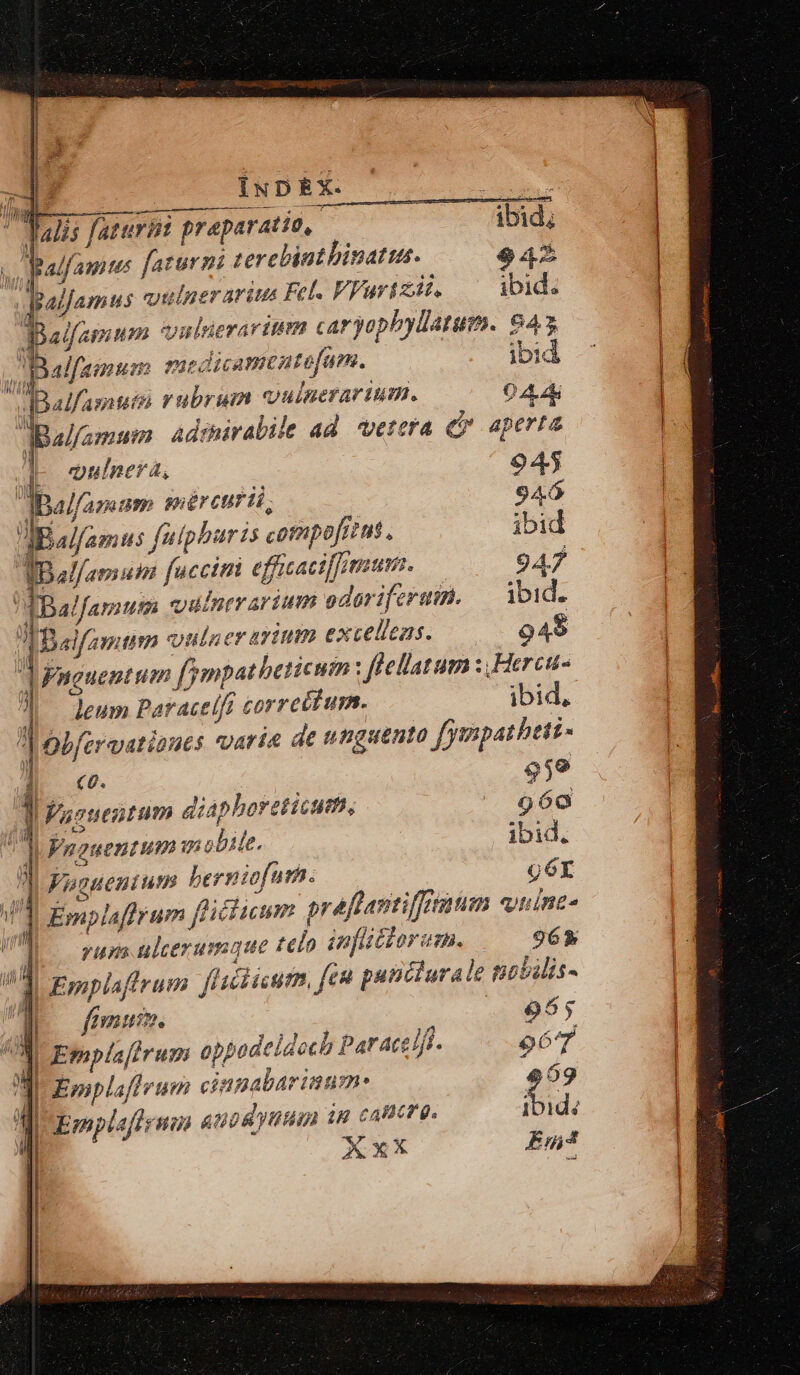 INDEX.
Salis ſaturni præparatio, ibid.
Balſamus ſaturni terebinthinatus. 942
Balſamus vulnerarius Fel. VVurtzii. ibid.
Balſamum vulnerarium caryophyllatum. 943
Balſamum medicamentoſum. ibid
Balſamum rubrum vulnerarium. 944
Balſamum admirabile ad vetera & aperta
vulnera, 945
Balſamum mercurii, 946
Balſamus ſulphuris compoſitus. ibid
Balſamum ſuccini efficaciſſimum. 947
Balſamum vulnerarium odoriferum. ibid.
Balſamum vulnerarium excellens. 948
Vnguentum ſympatheticum: ſtellatum: Hercu-
leum Paracelſi correctum. ibid.
Obſervationes variæ de unguento ſympatheti-
co. 950
Vnguentum diaphoreticum. 960
Vnguentum mobile. ibid.
Vnguentum hernioſum. 961
Emplaſtrum ſticticum præſtantiſſimum vulne-
rum ulcerumque telo inflictorum. 963
Emplaſtrum ſticticum, ſeu puncturale nobilis-
ſimum. 965
Emplaſtrum oppodeldoch Paracelſi. 967
Emplaſtrum cinnabarinum. 969
Emplaſtrum anodynum in cancro. ibid.
Xxx Em-